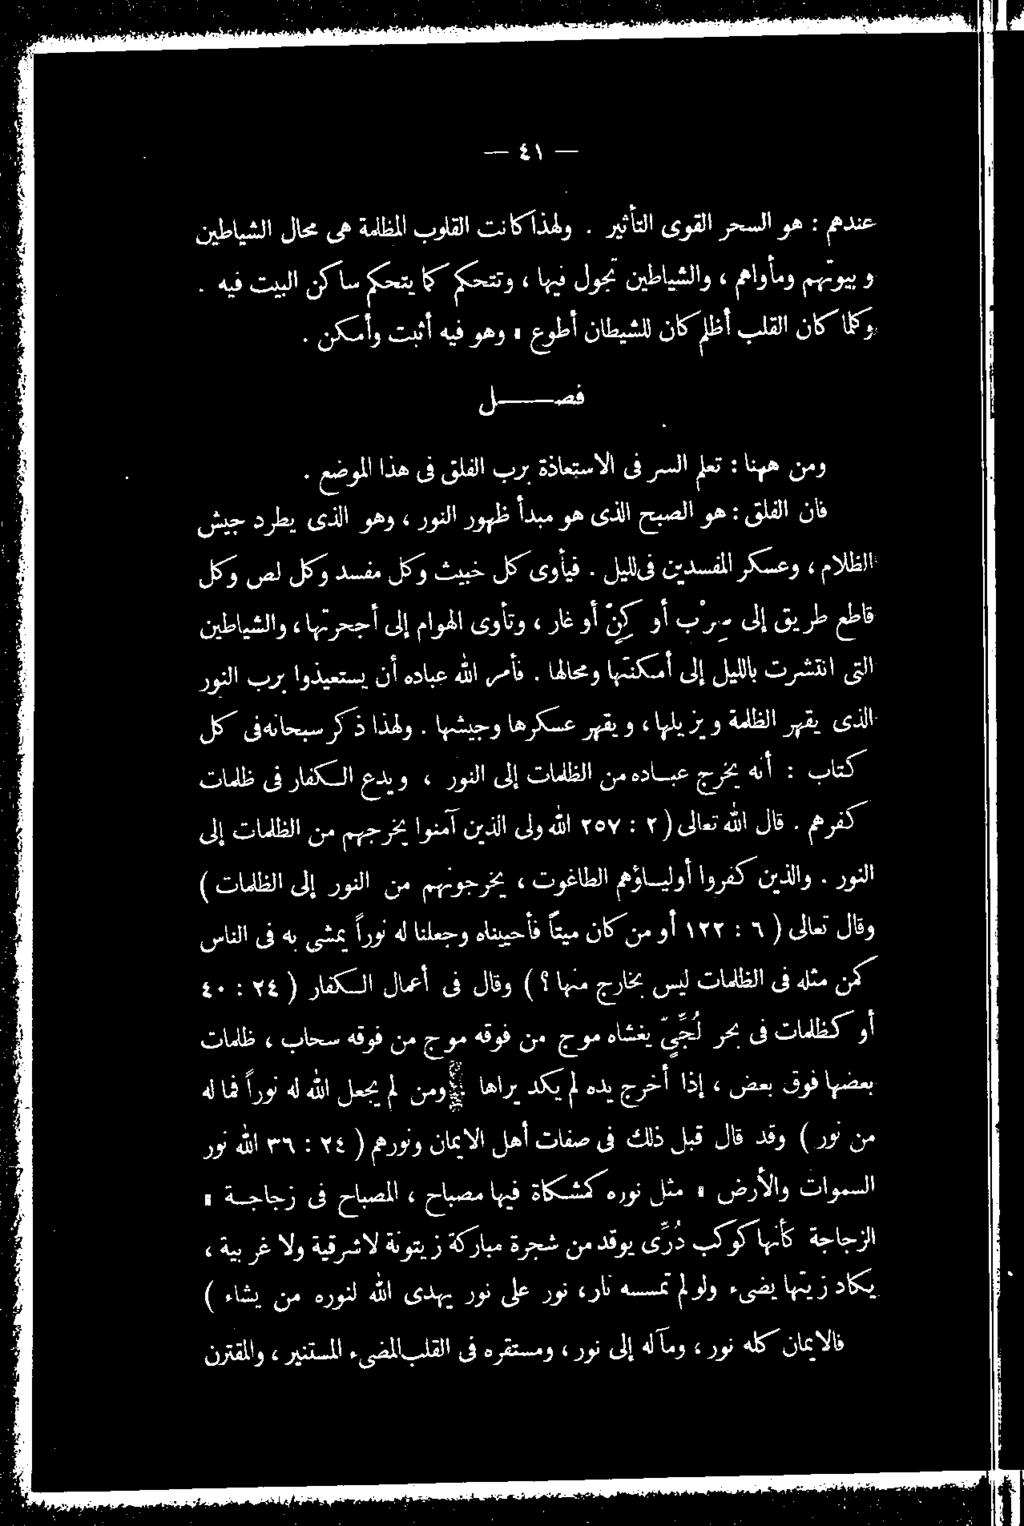 — ٤١ —
عندهم : هو السحر القوى التأثير . ولهذا كانت القلوب المظلمة هى محال الشياطين
وبيوتهم ومأواهم ، والشياطين تجول فيها ، وتتحكم كما يتحكم ساكن البيت فيه .
وكلما كان القلب أظلم كان للشيطان أطوع ، وهو فيه أثبت وأمكن .
فصــــل
ومن ههنا : تعلم السر فى الاستعاذة برب الفلق فى هذا الموضع .
فان الفلق : هو الصبح الذى هو مبدأ ظهور النور ، وهو الذى يطرد جيش
الظلام ، وعسكر المفسدين فى الليل . فيأوى كل خبيث وكل مفسد وكل لص وكل
قاطع طريق إلى سِرْب أو كِنّ أو غار ، وتأوى الهوام إلى أجحرتها ، والشياطين
التى انتشرت بالليل إلى أمكنتها ومحالها . فأمر الله عباده أن يستعيذوا برب النور
الذى يقهر الظلمة ويزيلها ، ويقهر عسكرها وجيشها . ولهذا ذكر سبحانه فى كل
كتاب : أنه يخرج عباده من الظلمات إلى النور ، ويدع الكفار فى ظلمات
كفرهم . قال الله تعالى ( ٢ : ٢٥٧ الله ولى الذين آمنوا يخرجهم من الظلمات إلى
النور . والذين كفروا أولياؤهم الطاغوت ، يخرجونهم من النور إلى الظلمات )
وقال تعالى ( ٦ : ١٢٢ أو من كان ميتاً فأحييناه وجعلنا له نوراً يمشى به فى الناس
كمن مثله فى الظلمات ليس بخارج منها ؟ ) وقال فى أعمال الكفار ( ٢٤ : ٤٠
أو كظلمات فى بحر لُجِّىّ يغشاه موج من فوقه موج من فوقه سحاب ، ظلمات
بعضها فوق بعض ، إذا أخرج يده لم يكد يراها . ومن لم يجعل الله له نوراً فما له
من نور ) وقد قال قبل ذلك فى صفات أهل الايمان ونورهم ( ٢٤ : ٣٦ الله نور
السموات والأرض ، مثل نوره كمشكاة فيها مصباح ، المصباح فى زجاجة ،
الزجاجة كأنها كوكب دُرِّى يوقد من شجرة مباركة زيتونة لاشرقية ولا غربية ،
يكاد زيتها يضىء ولو لم تمسسه نار ، نور على نور يهدى الله لنوره من يشاء )
فالايمان كله نور ، ومآله إلى نور ، ومستقره فى القلب المضىء المستنير ، والمقترن